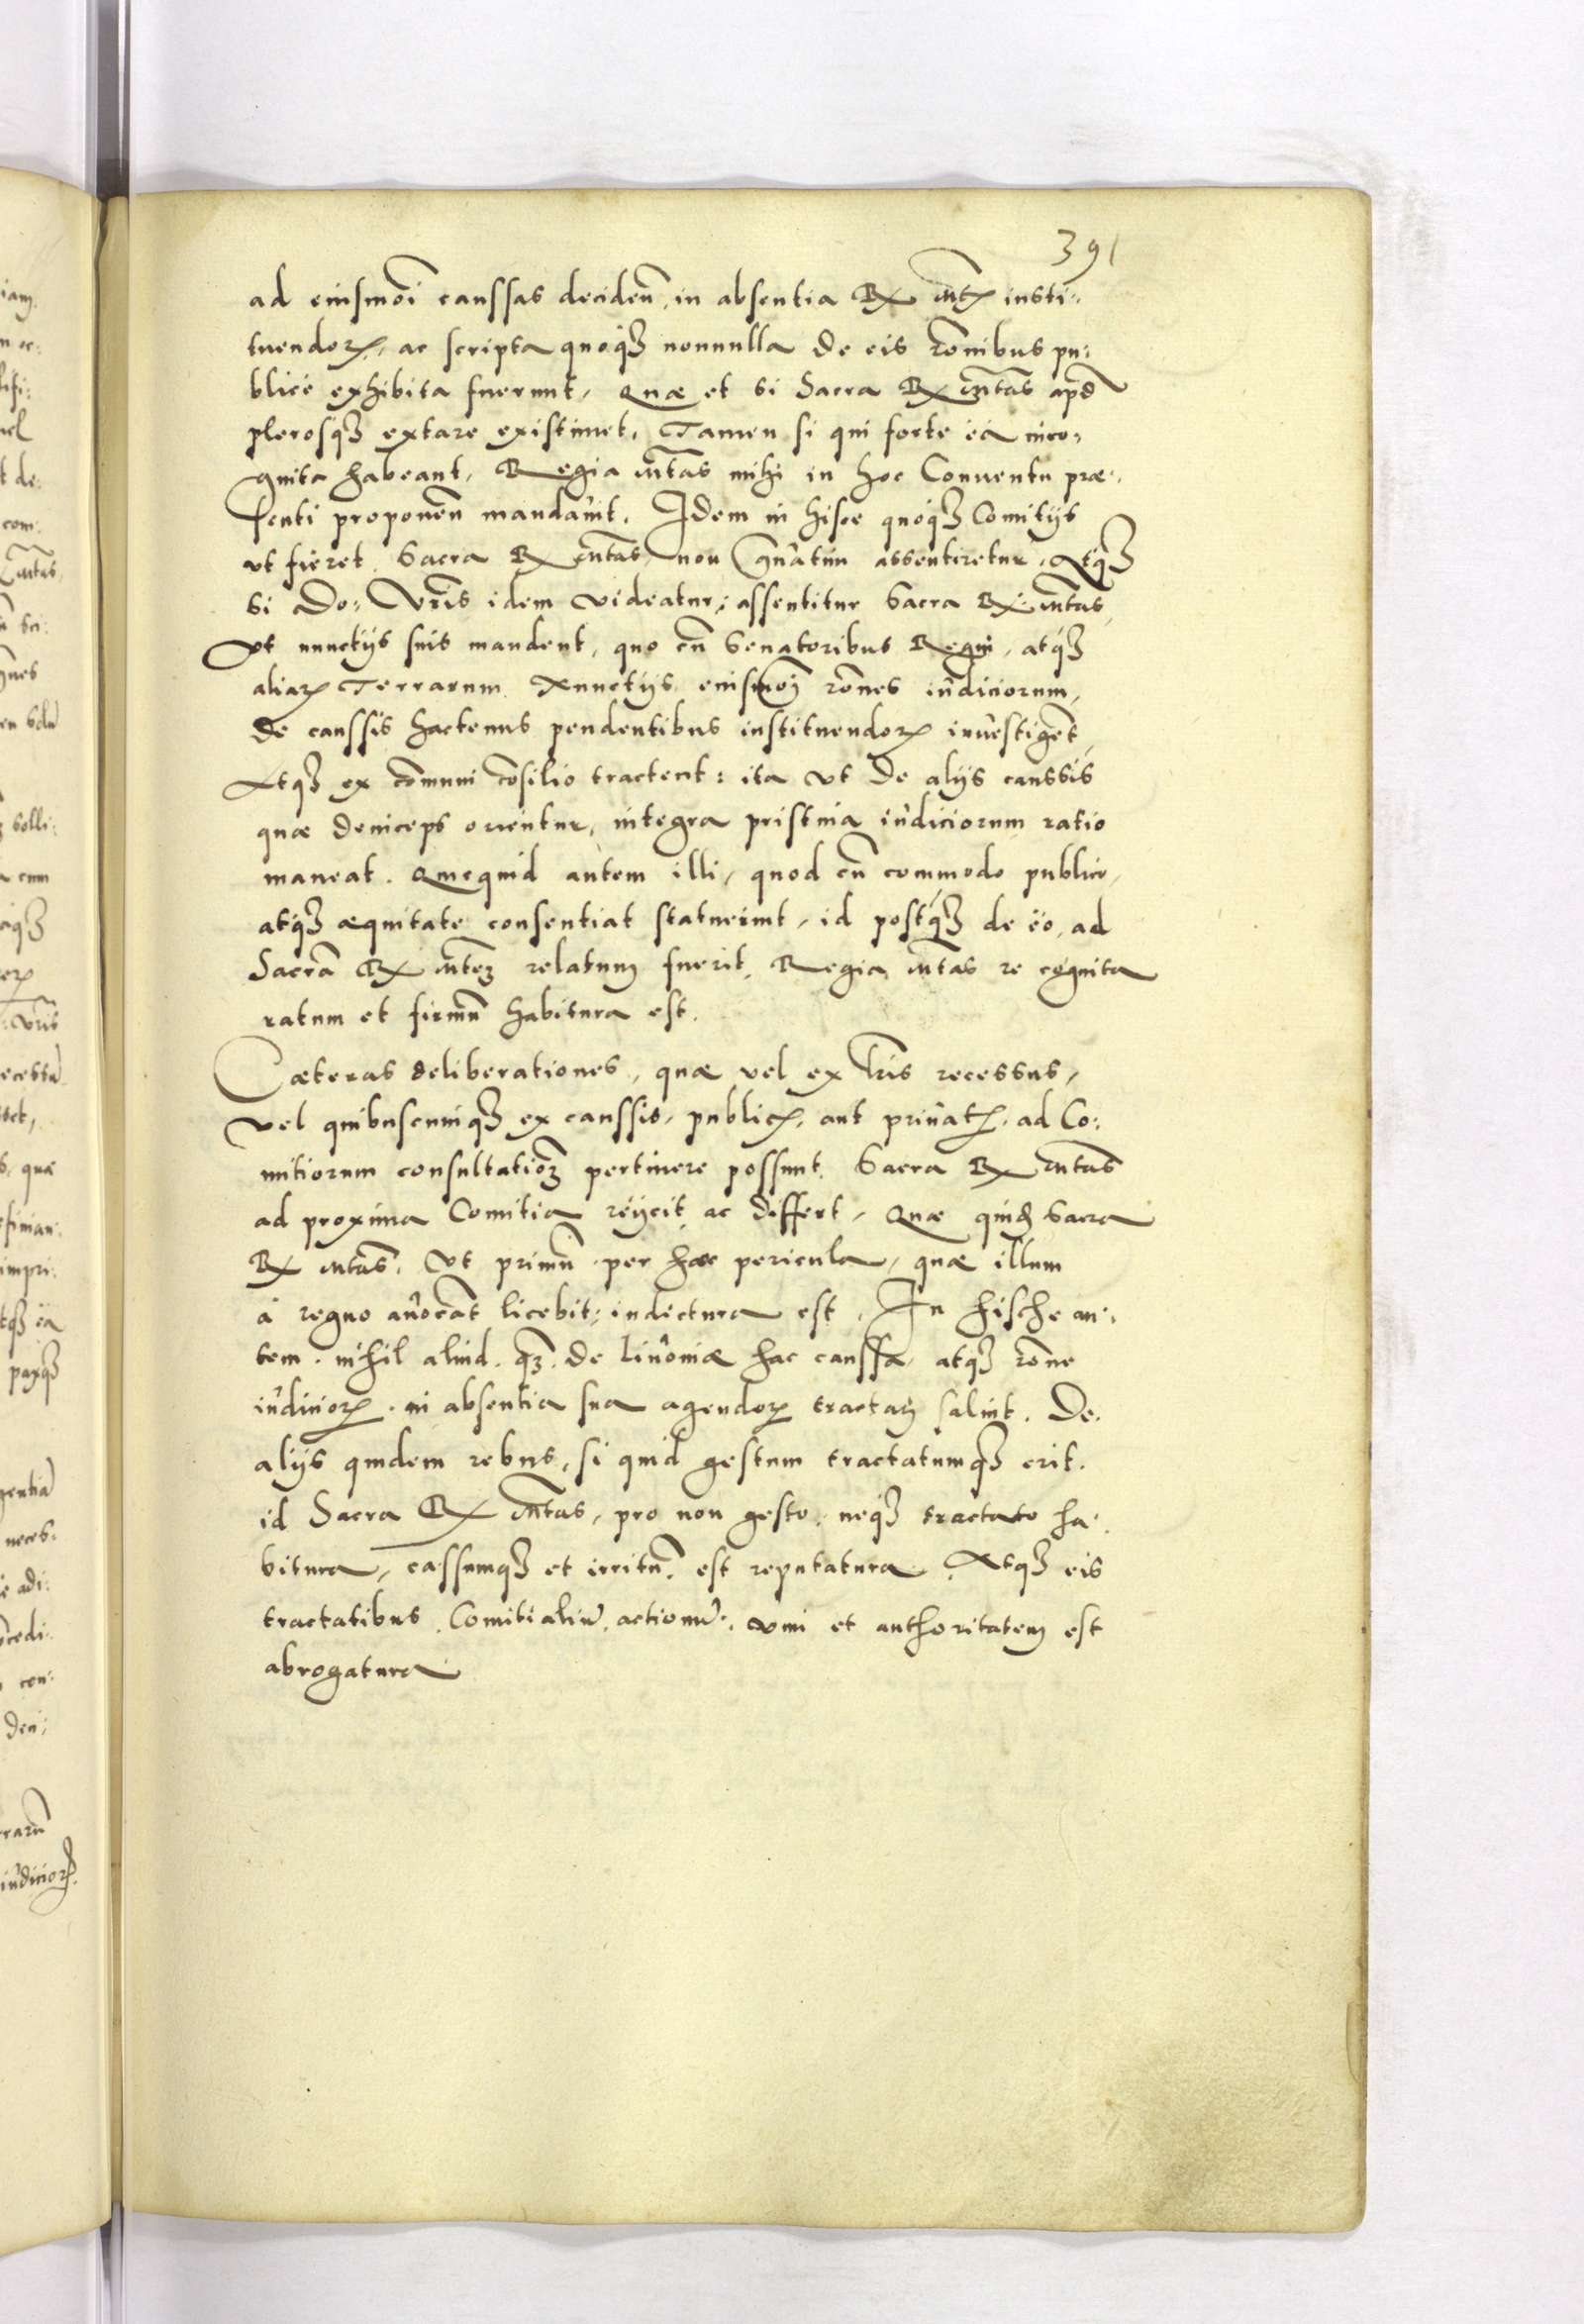 391
ad eiusmoi caussas decidend̄, in absentia Rx Mtꝭ insti:
tuendorꝝ, ac scripta quoqꝫ nonnulla de eis rōnibus pu:
blice exhibita fuerunt, Quæ et si Sacra Rx Mtas apd
plerosqꝫ extare existimet, Tamen si qui forte ea inco:
gnita habeant, Regia Mtas mihi in hoc Conuentu præ:
senti proponend̄ mandauit. Idem in hisce quoqꝫ Comitijs
vt fieret Sacra Rx Mtas non grauatim assentiretur. Atqꝫ
si Do: Vris idem videatur, assentitur Sacra Rx Mtas,
Vt nunctijs suis mandent, quo cū Senatoribus Regni, atqꝫ
aliarꝫ Terrarum Nunctijs eiusmoi rōnes iudiciorum,
de caussis hactenus pendentibus instituendorꝝ inuestiget,
Atqꝫ ex cōmuni cōsilio tractent: ita vt de alijs caussis
quæ deinceps orientur, integra pristina iudiciorum ratio
maneat. Quicquid autem illi, quod cū commodo publico,
atqꝫ æquitate consentiat statuerint, id postqꝫ de eo, ad
Sacrā Rx Mtēꝫ relatum fuerit, Regia Mtas re cognita
ratum et firmū habitura est.
Cæteras deliberationes, quæ vel ex lris recessus,
vel quibuscunqꝫ ex caussis, publicꝭ, aut priuatꝭ, ad Co:
mitiorum consultatioꝫ pertinere possunt Sacra Rx Mtas
ad proxima Comitia reijcit ac differt, Quæ quidꝫ Sacra
Rx Mtas, Vt primū per hæc pericula, quæ illum
à regno auocāt licebit, indictura est. In hische au:
tem nihil aliud qꝫ de Liuoniæ hac caussa, atqꝫ rōne
iudiciorꝝ in absentia sua agendorꝝ tractarj saluit. De
alijs quidem rebus, si quid gestum tractatumqꝫ erit.
id Sacra Rx Mtas, pro non gesto, neqꝫ tractato ha:
bitura, cassumqꝫ et irritū est reputatura. Atqꝫ eis
tractatibus Comitialiū actionū, vim et authoritatem est
abrogatura